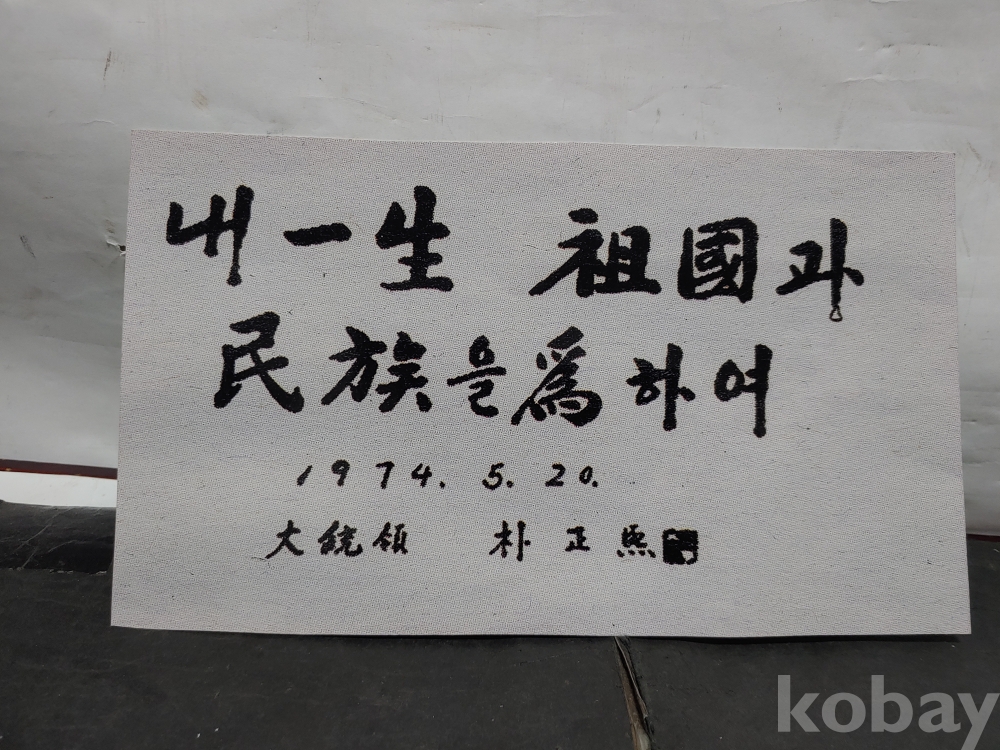 내 一生 祖國과
民族을 爲하여
1974. 5. 20.
大統領 朴正熙
kobay